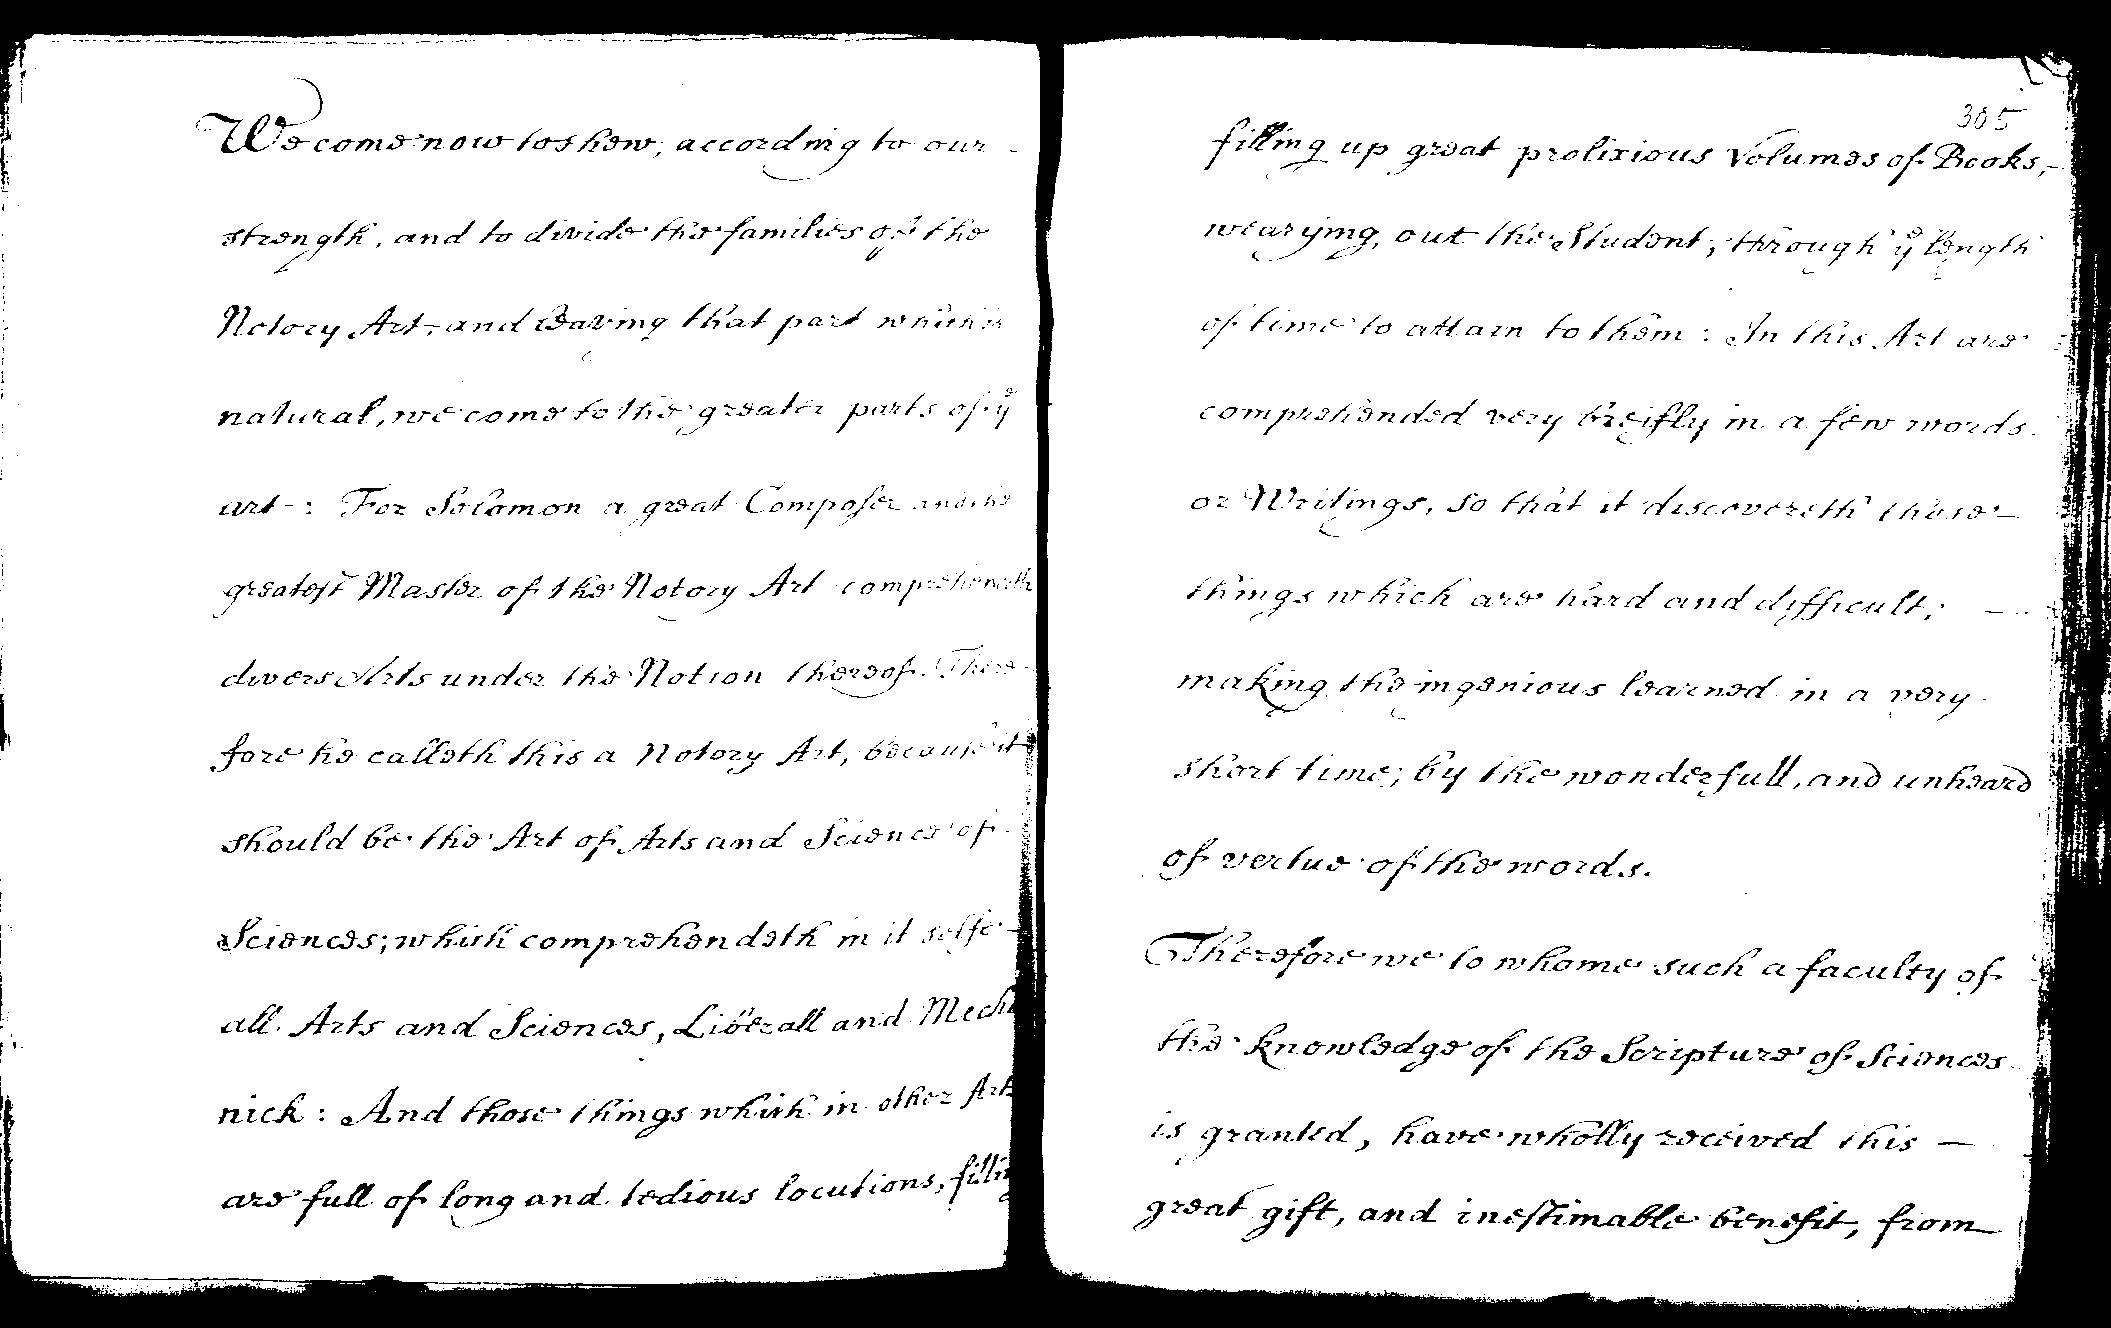 We come now to shew, according to our
strength, and to divide the families of the
Notory Art, and leaving that part which is
natural, we come to the greater parts of yᵉ
art: For Solomon a great Composer and the
greatest Master of the Notory Art comprehendeth
divers Arts under the Notion thereof. There-
fore he calleth this a Notory Art, because it
should be the Art of Arts and Science of
Sciences; which comprehendeth in it selfe
all Arts and Sciences, Liberall and Mecha
nick: And those things which in other Arts
are full of long and tedious locutions, filling
305
filling up great prolixious Volumes of Books,
wearying, out the Student, through yᵉ length
of time to attain to them: In this Art are
comprehended very breifly in a few words
or Writings, so that it discovereth those
things which are hard and difficult;
making the ingenious learned in a very
short time; by the wonderfull, and unheard
of vertue of the words.
Therefore we to whome such a faculty of
the knowledge of the Scripture of Sciences
is granted, have wholly received this
great gift, and inestimable benefit, from